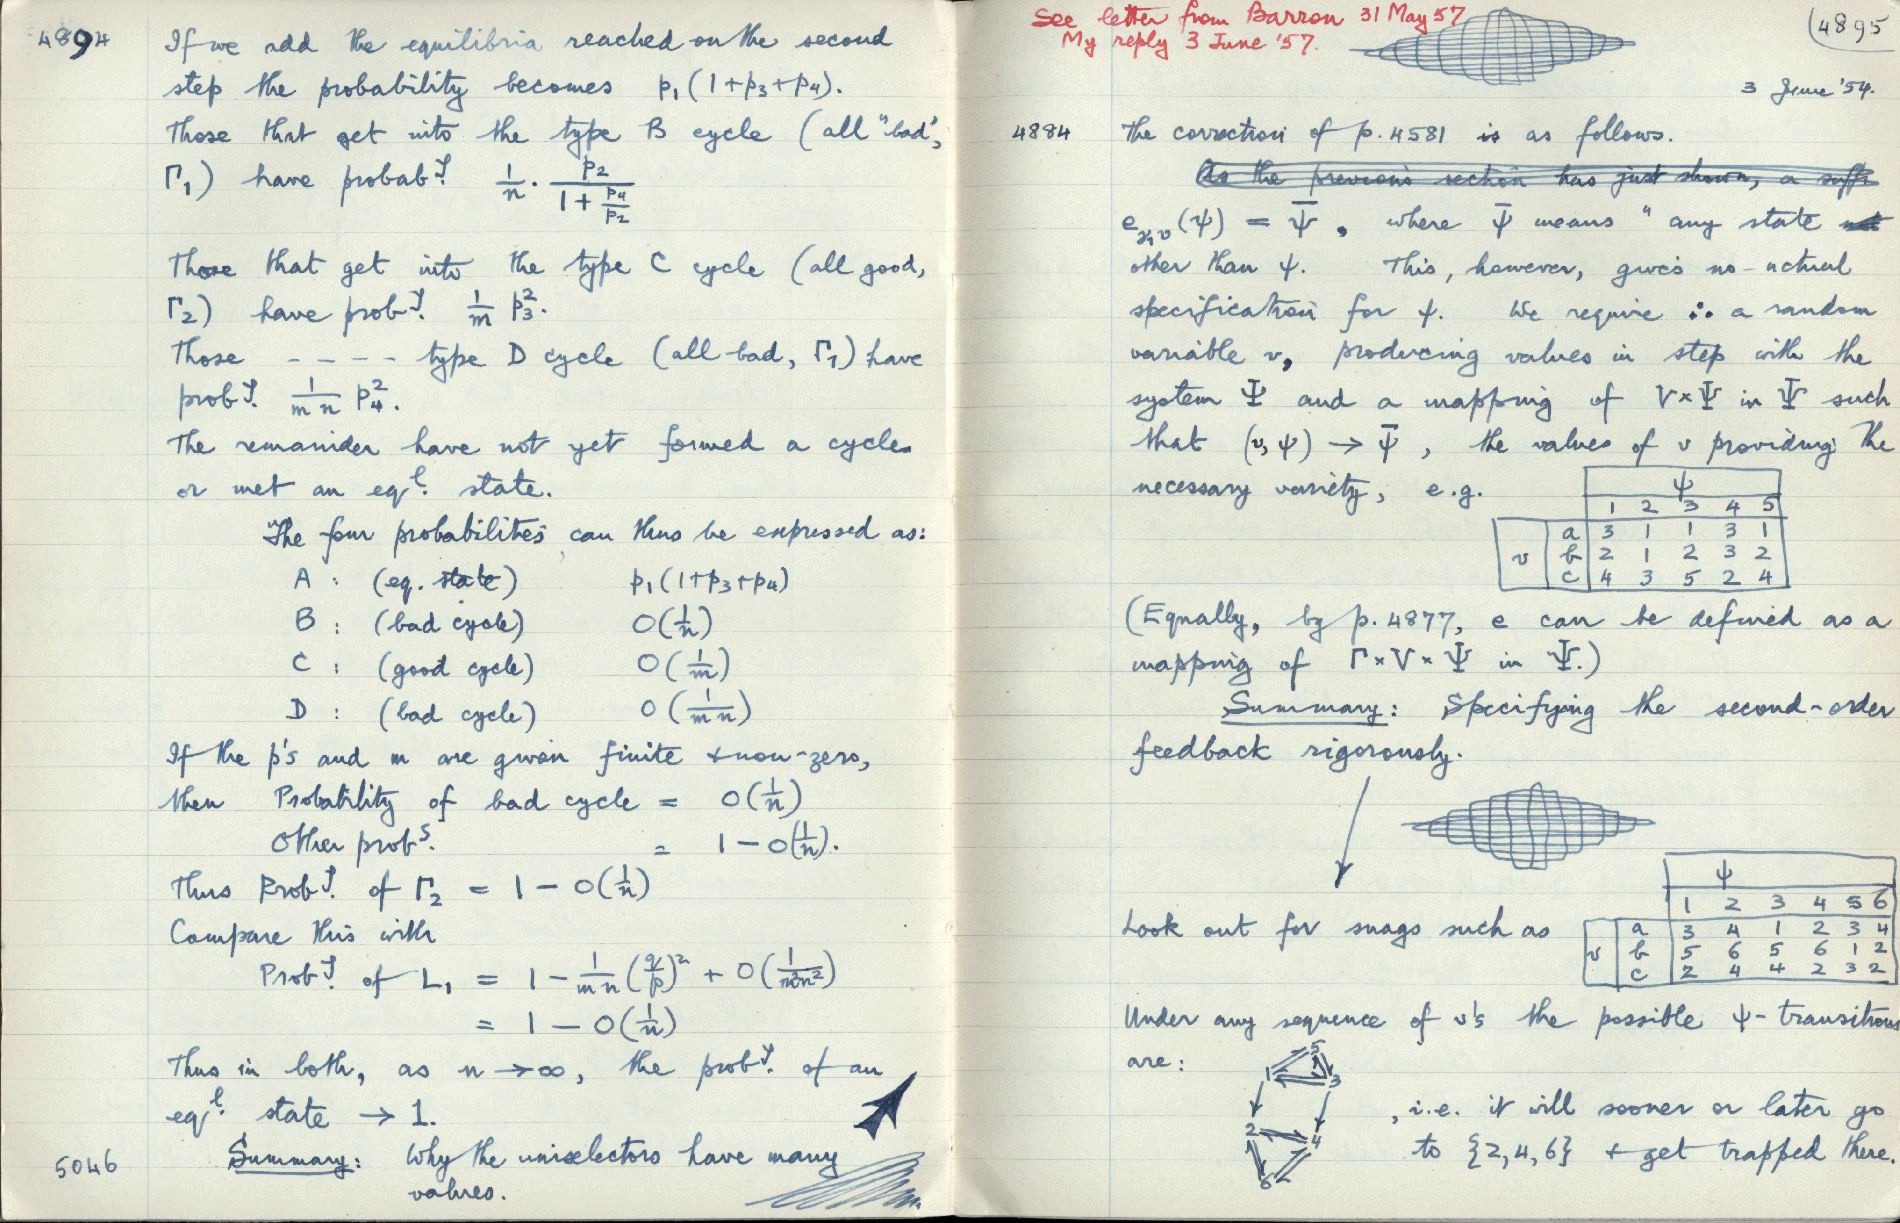 4894
If we add the equilibria reached on the second
step the probability becomes p₁(1+p₃+p₄).
Those that get into the type B cycle (all "bad",
Γ₁) have probabʸ. 1/n · p₂/(1 + p₄/p₂)
Those that get into the type C cycle (all good,
Γ₂) have probʸ. 1/m p₃².
Those - - - - type D cycle (all bad, Γ₁) have
probʸ. 1/mn p₄².
The remainder have not yet formed a cycle
or met an eqˡ. state.
The four probabilities can thus be expressed as:
A : (eq. state) p₁(1+p₃+p₄)
B : (bad cycle) O(1/n)
C : (good cycle) O(1/m)
D : (bad cycle) O(1/mn)
If the p's and m are given finite & non-zero,
then Probability of bad cycle = O(1/n)
Other probˢ. = 1 − O(1/n).
Thus Probʸ. of Γ₂ = 1 − O(1/n)
Compare this with
Probʸ. of L₁ = 1 − 1/mn (q/p)² + O(1/m²n²)
= 1 − O(1/n)
Thus in both, as n → ∞, the probʸ. of an
eqˡ. state → 1.
5046
Summary: Why the uniselectors have many
values.
See letter from Barron 31 May 57
My reply 3 June '57.
4895
3 June '54.
4884
The correction of p. 4581 is as follows.
As the previous section has just shown, a suffi
e_γ₁,v(ψ) = ψ̄, where ψ̄ means "any state not
other than ψ. This, however, gives no actual
specification for ψ. We require ∴ a random
variable v, producing values in step with the
system Ψ and a mapping of V×Ψ in Ψ such
that (v,ψ) → ψ̄, the values of v providing the
necessary variety, e.g.
ψ
1 2 3 4 5
a 3 1 1 3 1
v b 2 1 2 3 2
c 4 3 5 2 4
(Equally, by p. 4877, e can be defined as a
mapping of Γ×V×Ψ in Ψ.)
Summary: Specifying the second-order
feedback rigorously.
Look out for snags such as
ψ
1 2 3 4 5 6
a 3 4 1 2 3 4
v b 5 6 5 6 1 2
c 2 4 4 2 3 2
Under any sequence of v's the possible ψ-transitions
are:
5
1 3
2 4
6
, i.e. it will sooner or later go
to {2,4,6} & get trapped there.